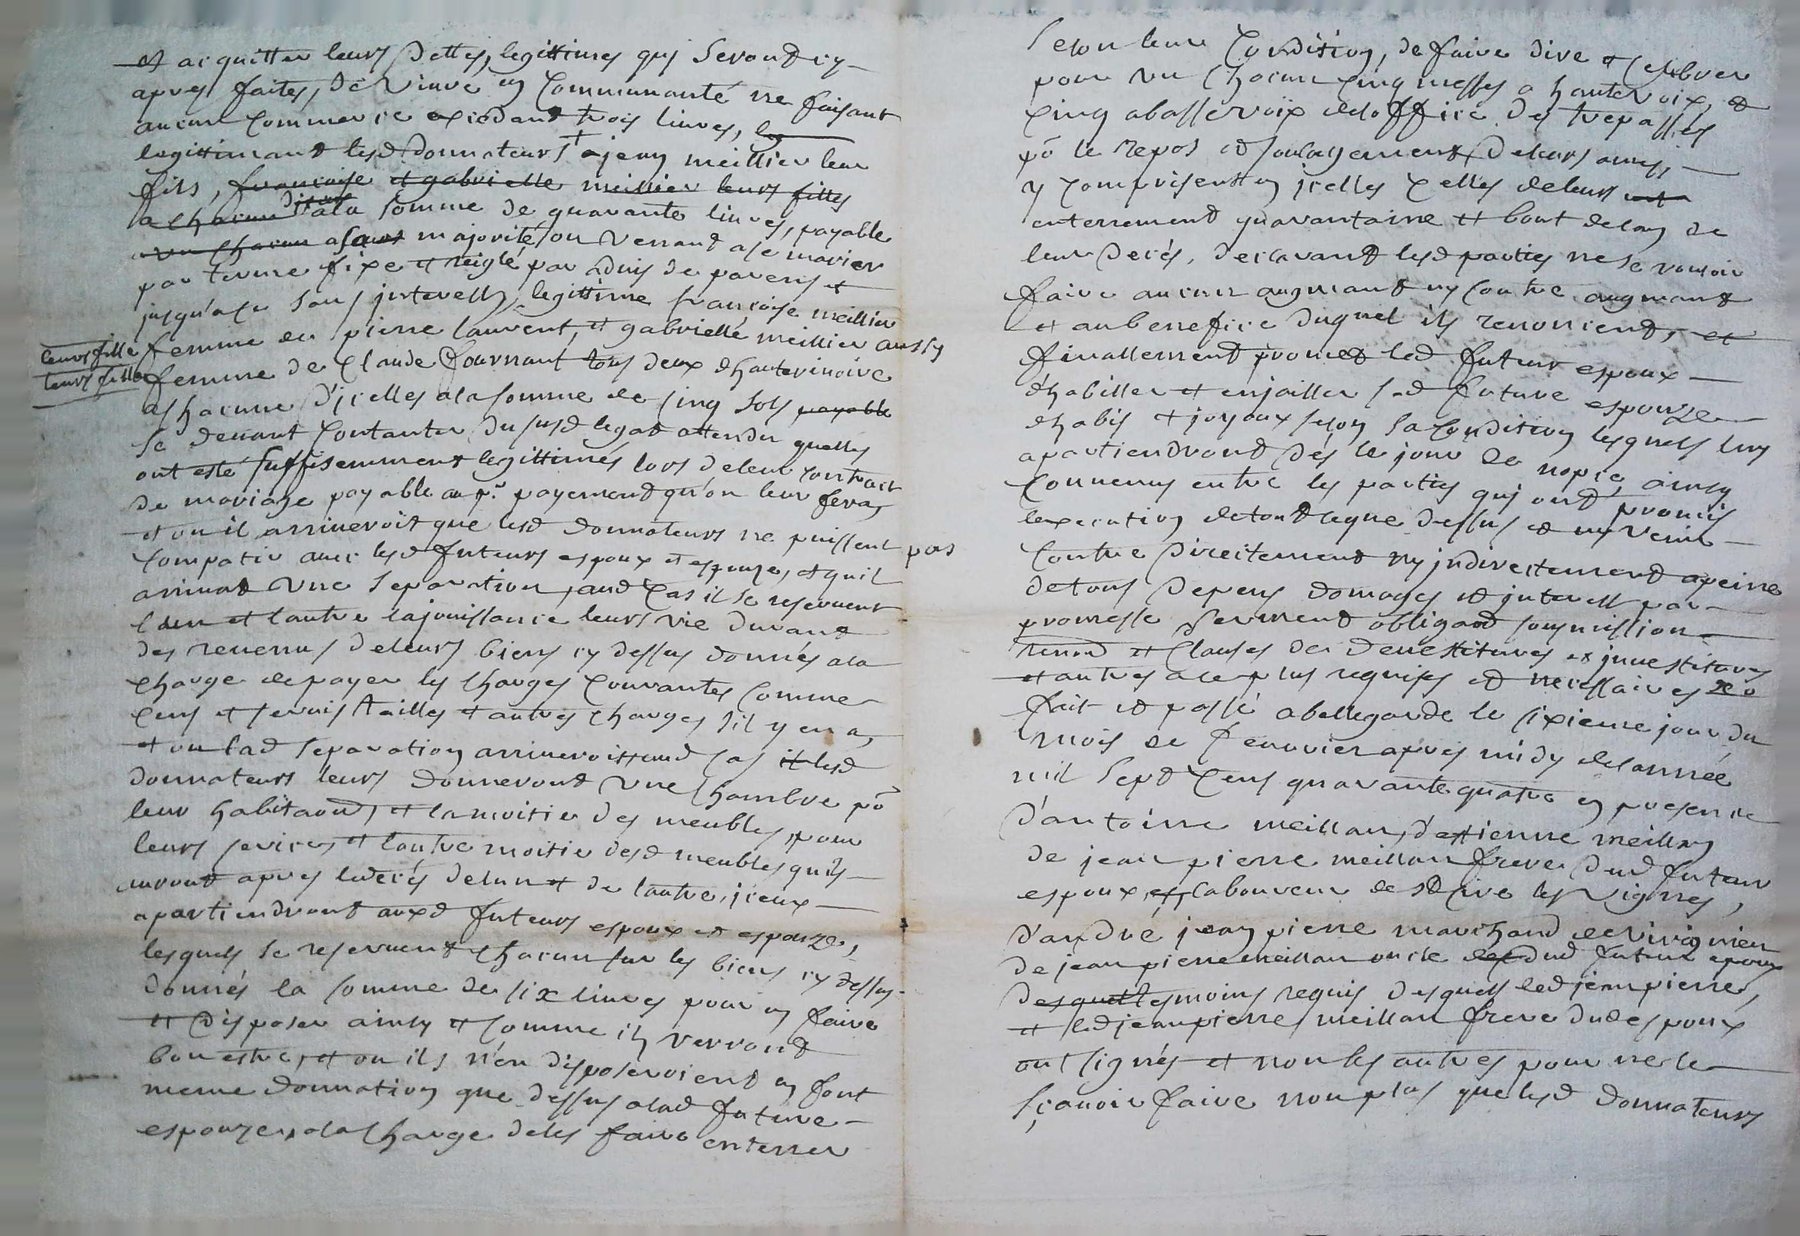 et acquitter leurs dettes, legittimes qui seront cy
apres faites, de vivre en communauté ne faisant
aucun commerce excedant trois livres,
legittimant lesd donnateurs jean meillier leur
fils, françoise et gabrielle meillier leurs filles
a chacun a la somme de quaranté livres, payable
un chacun a leurs majorité ou venant a se marier
par terme fixe et reiglé par advis de parens et
jusqu'a ce sans interests, legittime françoise meillier
femme de pierre laurent, et gabrielle meillier aussy
leurs fille
leurs fille
femme de Claude fournant tous deux d'hauterivoire
a chacune d'icelles a la somme de cinq sols payable
se devant contanter du susd legat attendu quelles
ont esté suffisemment legittimés lors de leur contract
de mariage payable au pr payement qu'on leur fera,
et ou il arriveroit que lesd donnateurs ne puissent pas
compatir avec lesd futeurs espoux et espouze, et quil
arrivat une separation, aud cas il se reservent
l'un et l'autre la jouissance leurs vie durant
des revenus de leurs biens cy dessus donnés a la
charge de payer les charges courantes comme
cens et servis tailles et autres charges s'il y en a,
et ou lad separation arriveroit aud cas il lesd
donnateurs leurs donneront une chambre po
leur habitaon, et la moitié des meubles, pour
leurs services et l'autre moitié desd meubles quils
auront apres le decés de l'un et de l'autre, iceux
apartiendront auxd futeurs espoux et espouze,
lesquels se reservent chacun sur les biens cy dessus
donnés la somme de six livres pour en faire
et disposer ainsy et comme ils verront
bon estre, et ou ils n'en disposeroient en font
meme donnation que dessus a lad future
espouze, a la charge de les faire enterrer
selon leur condition, de faire dire et celebrer
pour un chacun cinq messes a haute voix, et
cinq a basse voix de l'office des trepassés
po le repos et soulagement de leurs ames,
y comprisent en icelles celles de leurs
enterrement quarantaine et bout de l'an de
leur decés, declarant lesd parties ne se vouloir
faire aucun augment ny contre augment
et au benefice duquel ils renoncent, et
finallement promet led futeur espoux
d'habiller et enjailler sad future espouze
d'habis et joyaux selon sa condition lesquels luy
apartiendront dés le jour de nopce, ainsy
convenus entre les parties qui ont promis
l'execution de tout ce que dessus et ny venir
contre directement ny indirectement a peine
de tous depens domages et interest par
promesse serment obligaon soumission
renon et clauses de devestitures et investitures
et autres a ce plus requises et necessaires
fait et passé a bellegarde le sixieme jour du
mois de fevrier apres midy de l'année
mil sept cens quarante quatre en presence
d'antoine meillan, d'estienne meillan
de jean pierre meillan frere dud futeur
espoux, laboureur de st Cire les vignes,
d'andré jean pierre marchand de virignieu
de jean pierre meillan oncle dud futeur epoux
tesmoins requis desquels led jean pierre,
et led jean pierre meillan frere dud espoux
ont signés et non les autres pour ne le
sçavoir faire non plus que lesd donnateurs